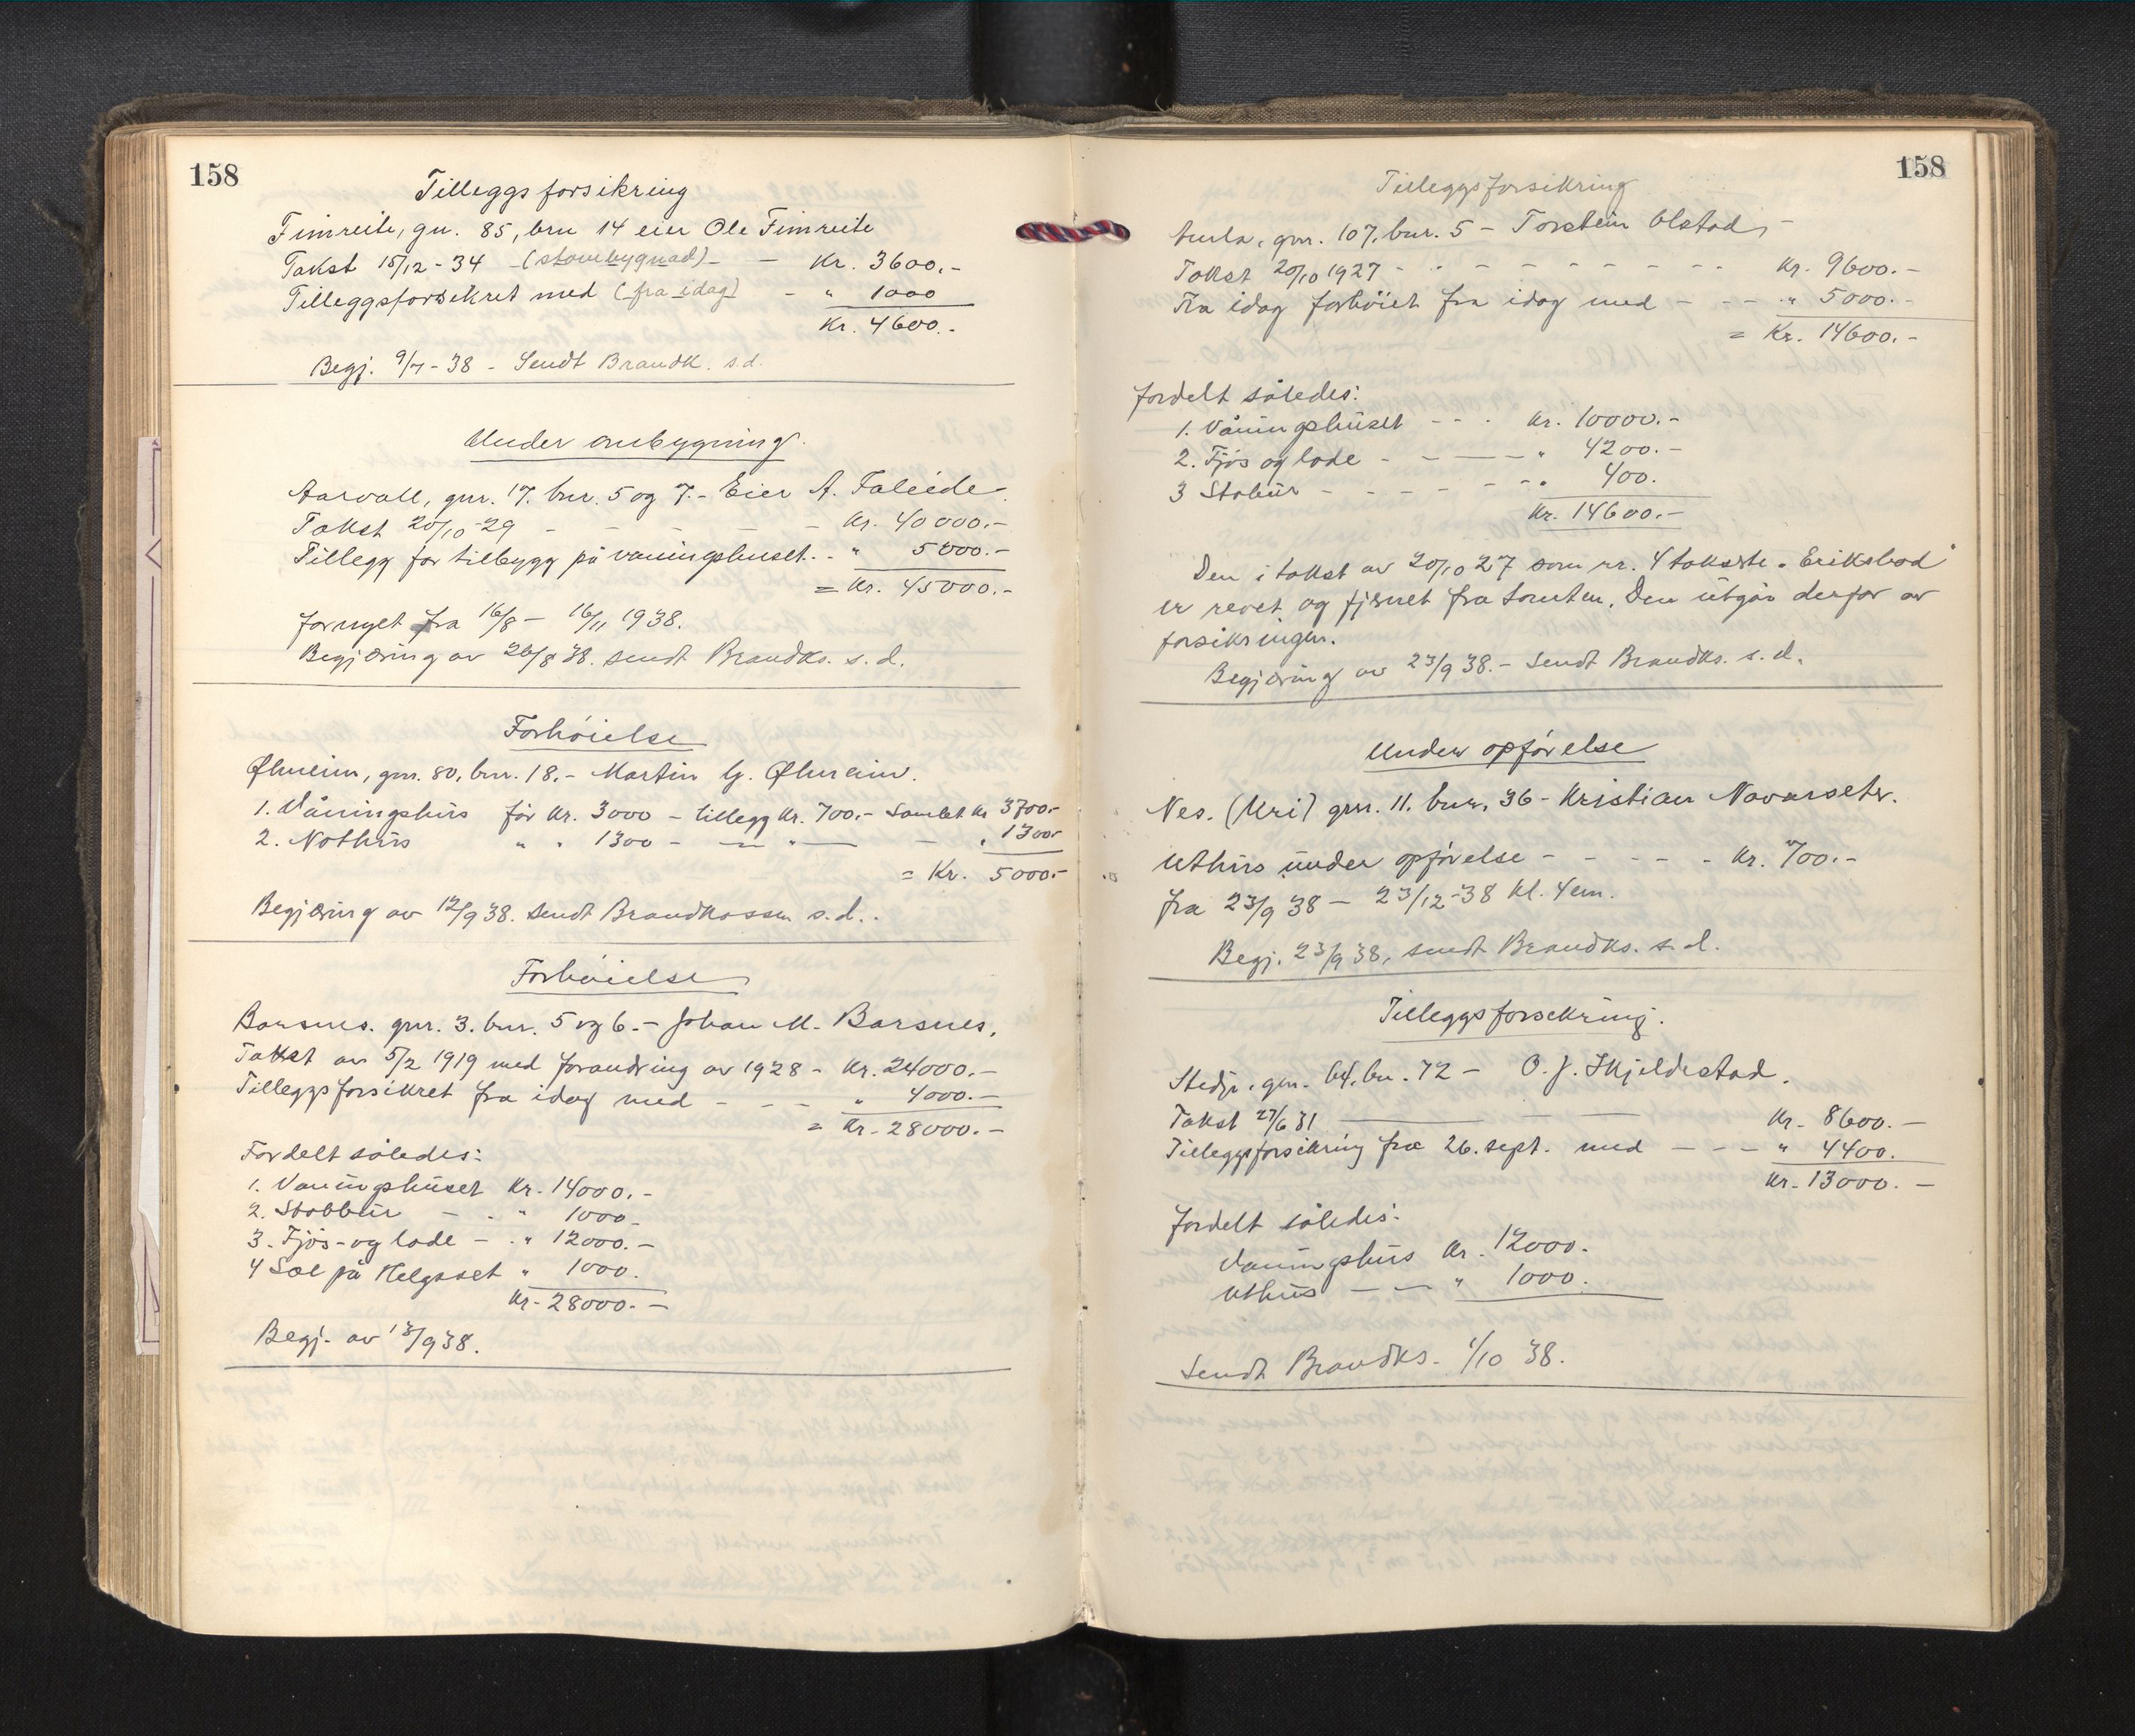 158
Tilleggsforsikring
Fimreite, gn. 85, bru 14 eier Ole Fimreite
Takst 15/12-34 - (stovebygnad) - - Kr. 3600.-
Tilleggsforsikret med (fra idag) - " 1000
Kr. 4600.-
Begj. 9/7-38 - Sendt Brandk. s.d.
Under ombygning.
Aarvoll, gnr. 17. bnr. 5 og 7.- Eier A. Faleide.
Takst 20/10-29 - - - - - - Kr. 40000.-
Tillegg for tilbygg på vaningshuset. - " 5000.-
= Kr. 45000.-
fornyet fra 16/8 - 16/11 1938.
Begjæring av 26/8 38. sendt Brandks. s.d.
Forhöielse
Ølmeim, gnr. 80, bnr. 18.- Martin G. Ølmeim.
1. Våningshus för Kr. 3000 - tillegg Kr. 700.- Samlet Kr 3700.-
2. Nothus " " 1300 - — " — - " 1300-
= Kr. 5000.-
Begjæring av 12/9 38. Sendt Brandkassen s.d..
Forhöielse
Barsnes. gnr. 3. bnr. 5 og 6.- Johan M. Barsnes.
Takst av 5/2 1919 med forandring av 1928 - Kr. 24000.-
Tilleggsforsikret fra idag med - - - " 4000.-
= Kr. 28000.-
Fordelt således:
1. Vaningshuset Kr. 14000.-
2. Stabbur - - " 1000-
3. Fjös- og lade - . " 12000.-
4 Sæl på Helgaset " 1000.
Kr. 28000.-
Begj. av 13/9 38.
158
Tilleggsforsikring
Amla, gnr. 107, bnr. 5 - Torstein Olstad, -
Takst 20/10 1927 - - - - - - - - Kr. 9600.-
Fra idag forhöiet fra idag med - - - " 5000.-
= Kr. 14600.-
fordelt således:
1. Våningshuset - - . Kr. 10000.-
2. Fjös og lade - - — - " 4200.-
3 Stabur - - - - - - " 400.
Kr. 14600.-
Den i takst av 20/10 27 som nr. 4 takserte "Eriksbod"
er revet og fjernet fra tomten. Den utgår derfor av
forsikringen.
Begjæring av 23/9 38.- Sendt Brandks. s.d.
Under opförelse
Nes. (Kri) gnr. 11. bnr. 36 - Kristian Navarseter.
Uthus under opförelse - - - - - Kr. 700.-
fra 23/9 38 - 23/12-38 kl. 4 em.
Begj. 23/9 38, sendt Brandks. s.d.
Tilleggsforsikring.
Stedje, gnr. 64, bn. 72 - O. J. Skjeldestad.
Takst 27/6 31 — - — Kr. 8600.-
Tilleggsforsikring fra 26. sept. med - - - " 4400.
Kr. 13000.-
fordelt således:
Vaningshus Kr. 12000.
Uthus - - " 1000.
Sendt Brandks. 1/10 38.